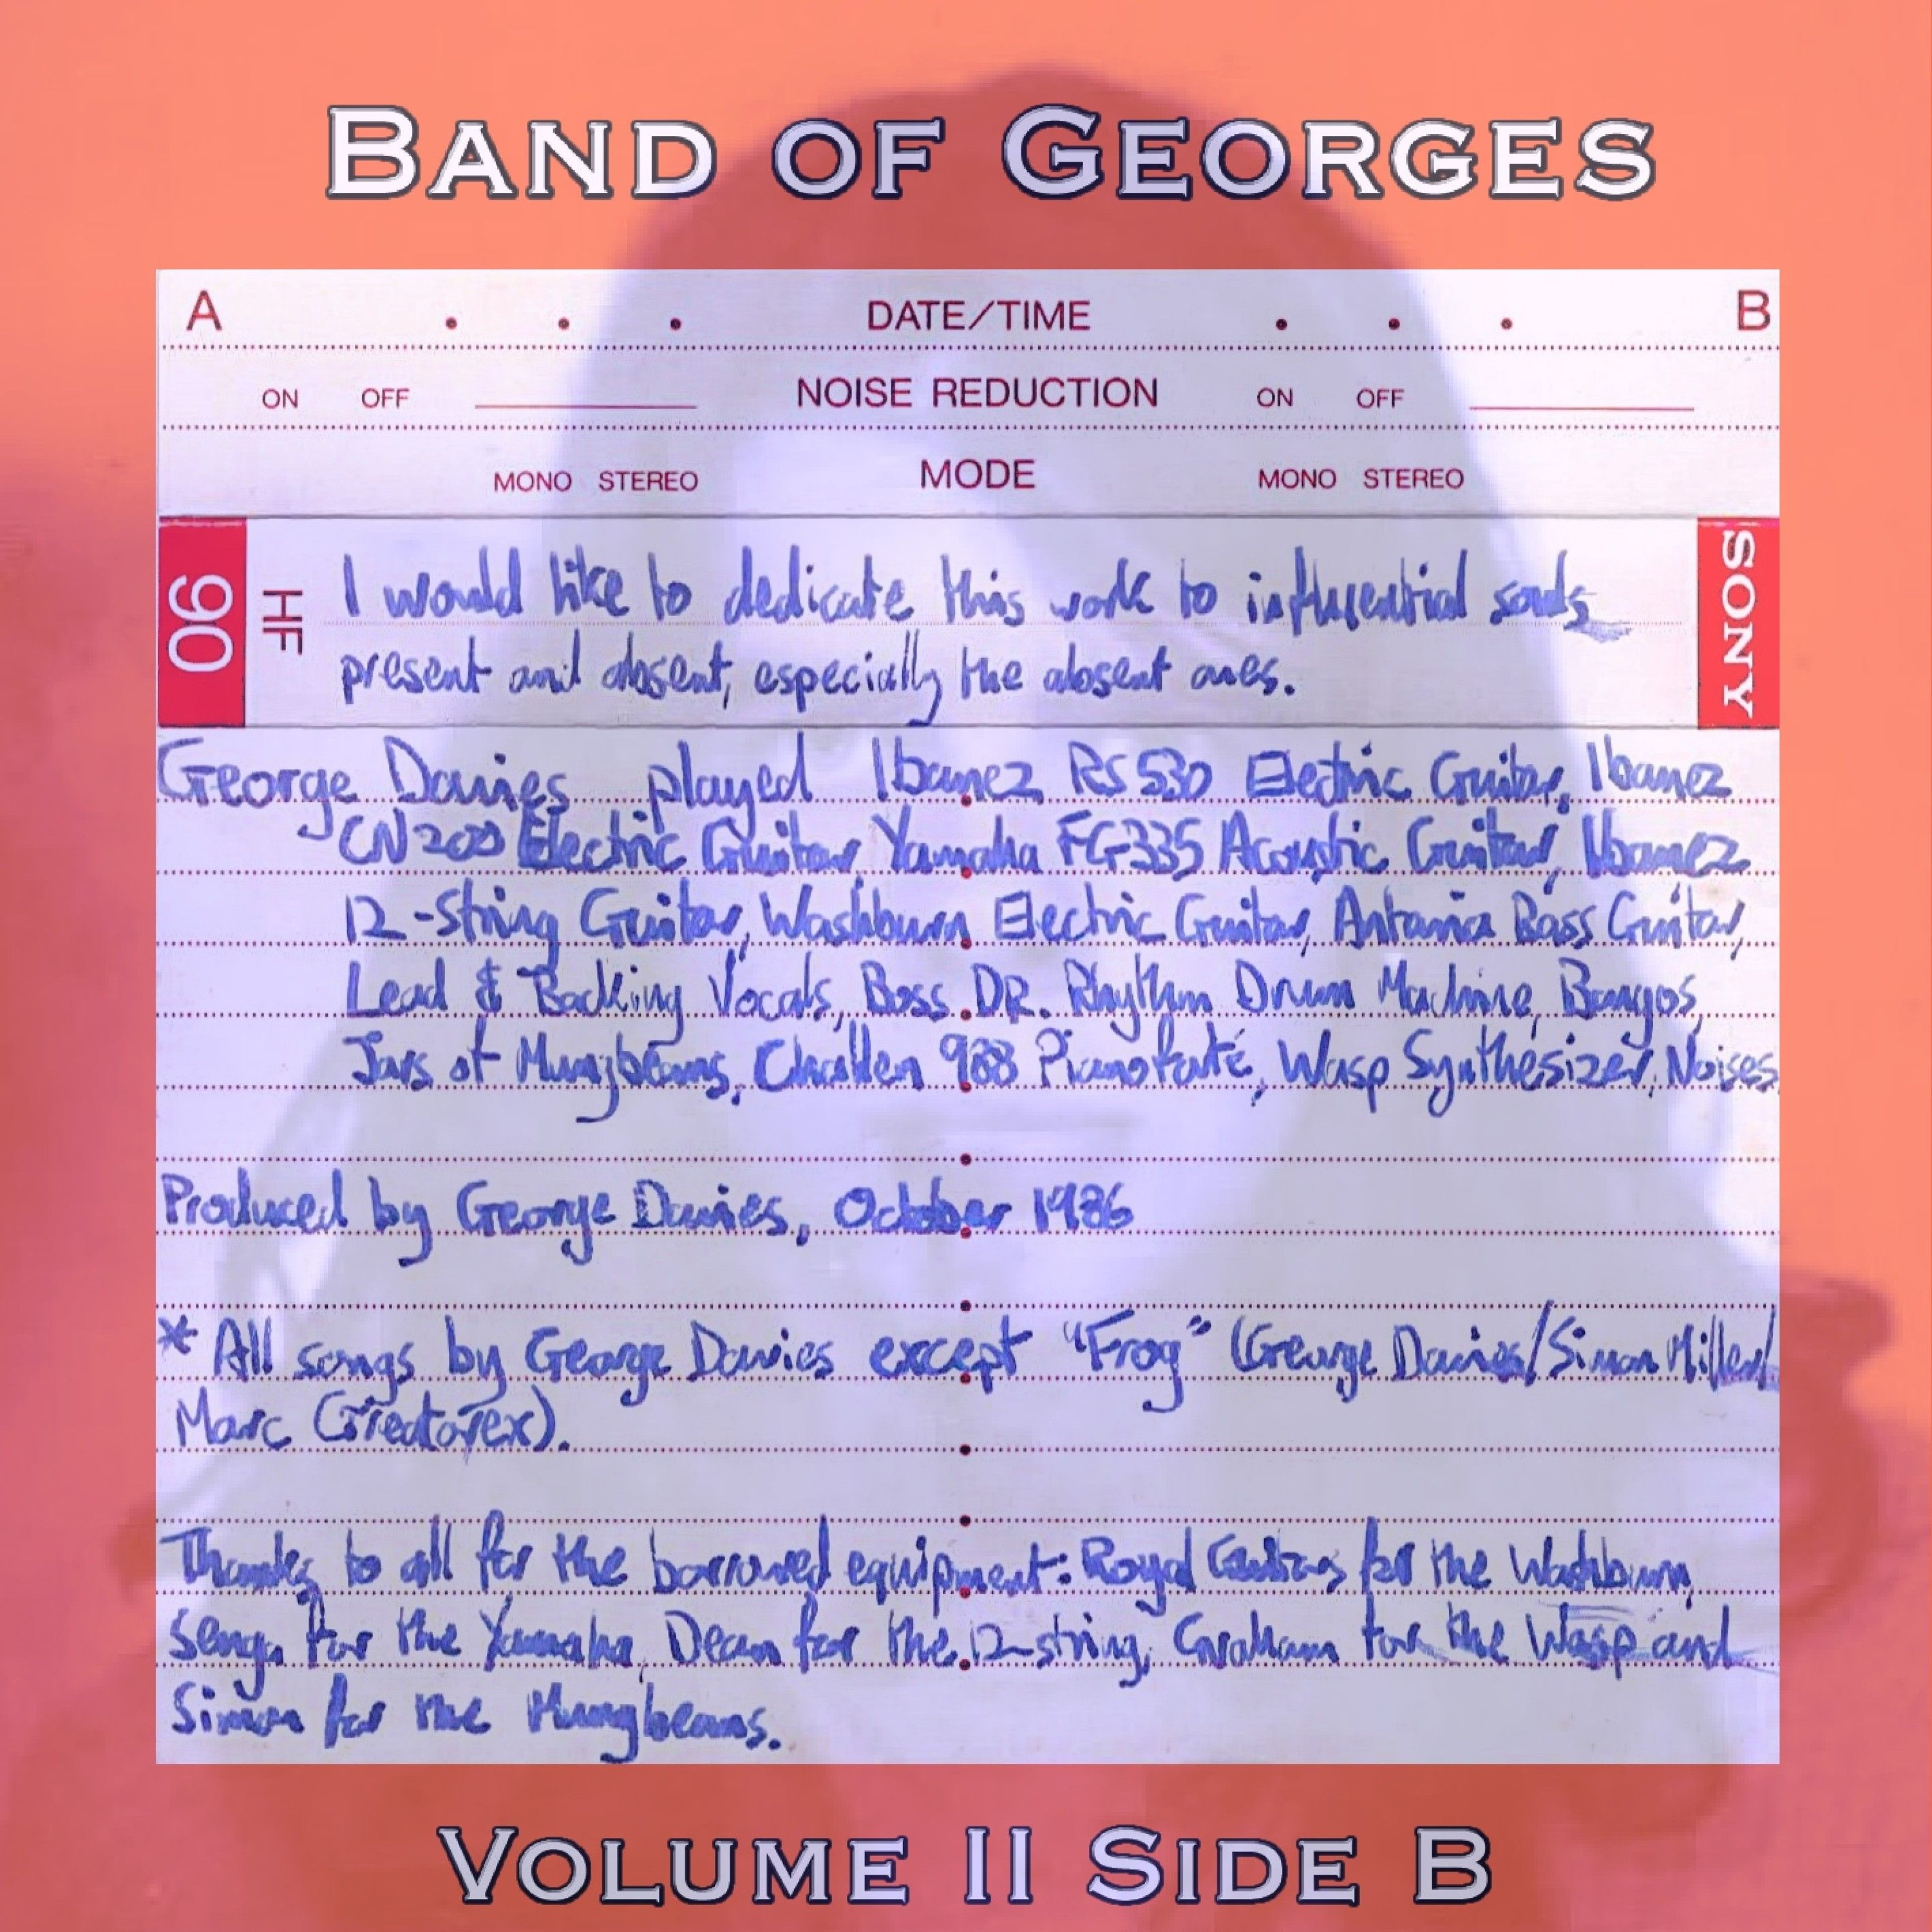 BAND OF GEORGES
A . . . DATE/TIME . . . B
ON OFF NOISE REDUCTION ON OFF
MONO STEREO MODE MONO STEREO
90
HF
SONY
I would like to dedicate this work to influential souls
present and absent, especially the absent ones.
George Davies played Ibanez RS530 Electric Guitar, Ibanez
CN200 Electric Guitar, Yamaha FG335 Acoustic Guitar, Ibanez
12-String Guitar, Washburn Electric Guitar, Antoria Bass Guitar,
Lead & Backing Vocals, Boss DR. Rhythm Drum Machine, Bongos,
Jars of Mungbeans, Challen 988 Pianoforté, Wasp Synthesizer, Noises
Produced by George Davies, October 1986
* All songs by George Davies except "Frog" (George Davies/Simon Miller/
Marc Greatorex).
Thanks to all for the borrowed equipment: Royal Guitars for the Washburn,
Seng. for the Yamaha, Dean for the 12-string, Graham for the Wasp and
Simon for the Mungbeans.
VOLUME II SIDE B